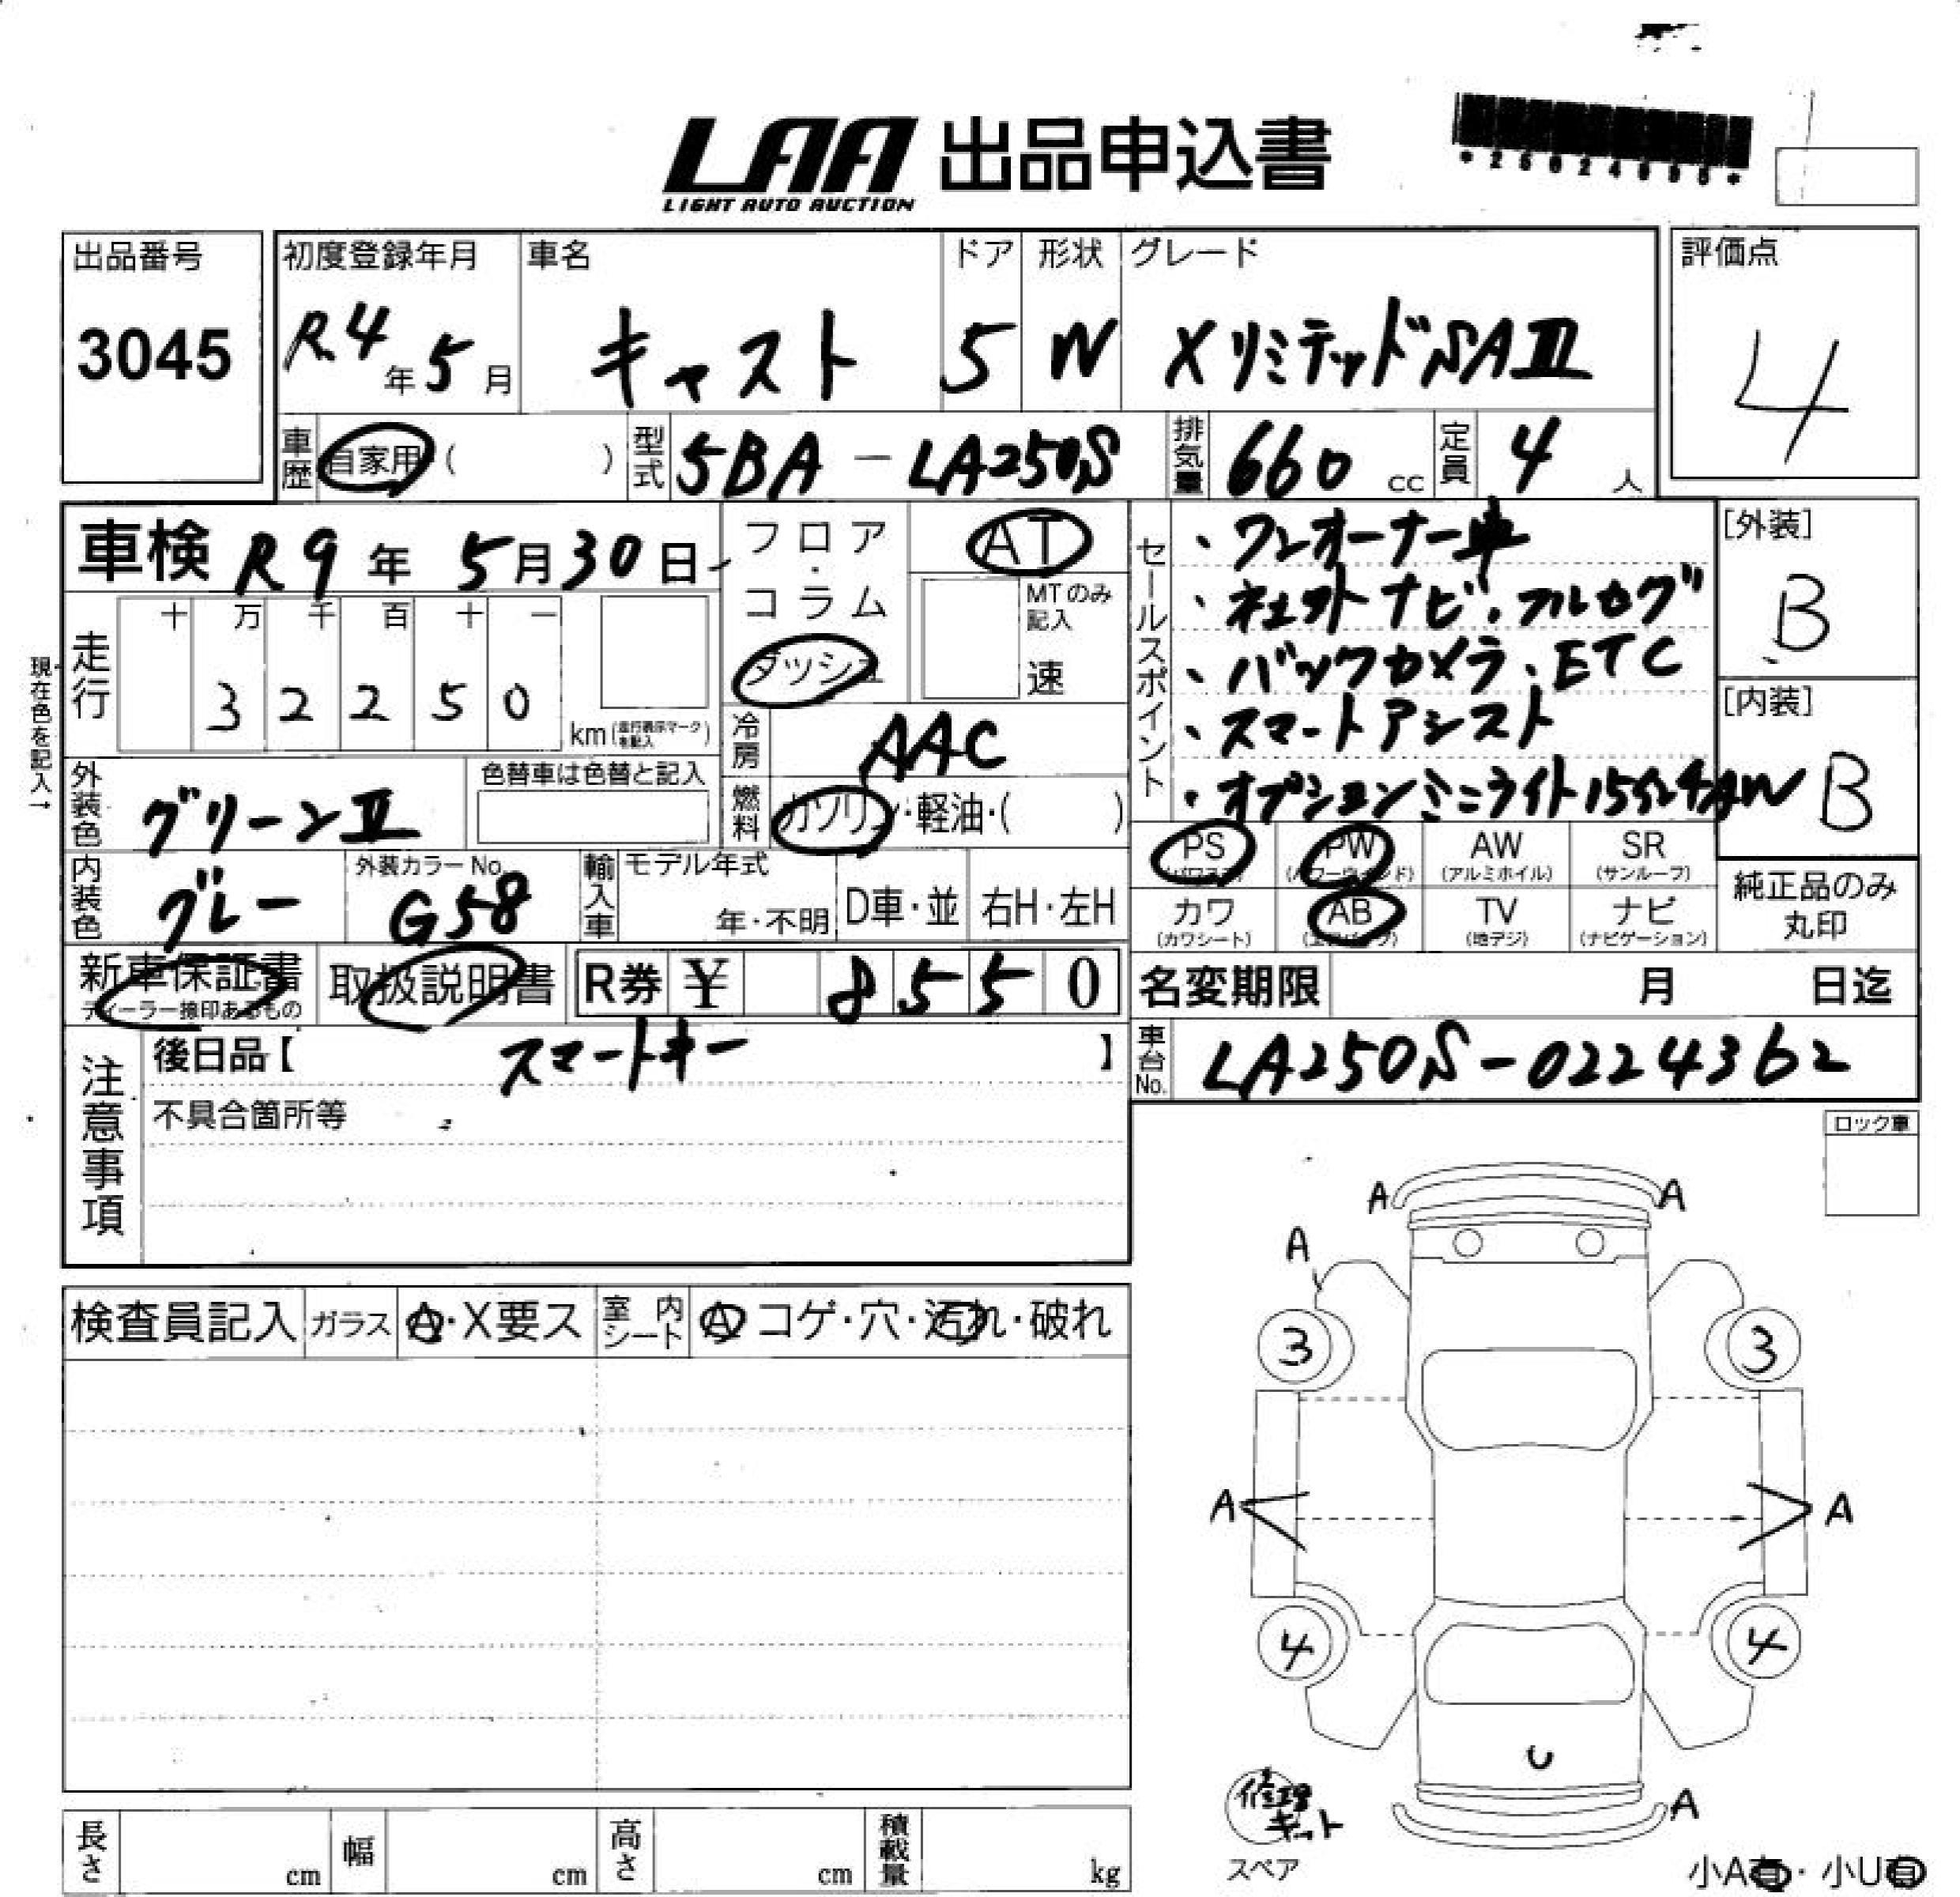 LAA 出品申込書
LIGHT AUTO AUCTION
出品番号
3045
初度登録年月
R4年5月
車名
キャスト
ドア
5
形状
W
グレード
XリミテッドSAⅢ
評価点
4
車歴 自家用 ( )
型式 5BA-LA250S
排気量 660 cc
定員 4 人
車検 R9年 5月30日
フロア・コラム
ダッシュ
AT
MTのみ記入
速
セールスポイント
・ワンオーナー車
・社外ナビ・フルセグ
・バックカメラ、ETC
・スマートアシスト
・オプションミニライト15インチAW
[外装]
B
[内装]
B
現在色を記入→
走行
十 万 千 百 十 一
3 2 2 5 0
km (走行表示マークを記入)
冷房 AAC
燃料 ガソリン・軽油・( )
外装色 グリーンⅡ
色替車は色替と記入
内装色 グレー
外装カラーNo.
G58
輸入車
モデル年式
年・不明
D車・並
右H・左H
PS
(パワステ)
PW
(パワーウィンド)
AW
(アルミホイル)
SR
(サンルーフ)
カワ
(カワシート)
AB
(エアバッグ)
TV
(地デジ)
ナビ
(ナビゲーション)
純正品のみ
丸印
新車保証書
ディーラー捺印あるもの
取扱説明書
R券 ¥ 8550
名変期限 月 日迄
車台No. LA250S-0224362
注意事項
後日品【 スマートキー 】
不具合箇所等
ロック車
検査員記入
ガラス A・X要ス
室内シート A コゲ・穴・汚れ・破れ
A A
A
3 3
A A
4 4
U
A
修理キット
スペア
長さ cm
幅 cm
高さ cm
積載量 kg
小A有・小U有